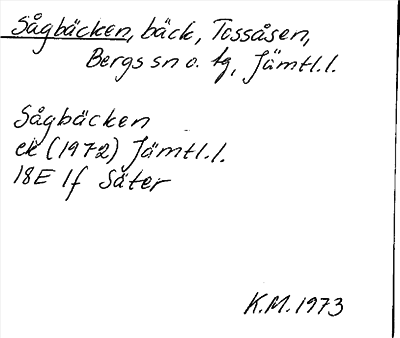 Sågbäcken, bäck, Tossåsen,
Bergs sn o. tg, Jämtl.l.
Sågbäcken
ek (1972) Jämtl.l.
18E 1f Säter
K.M. 1973